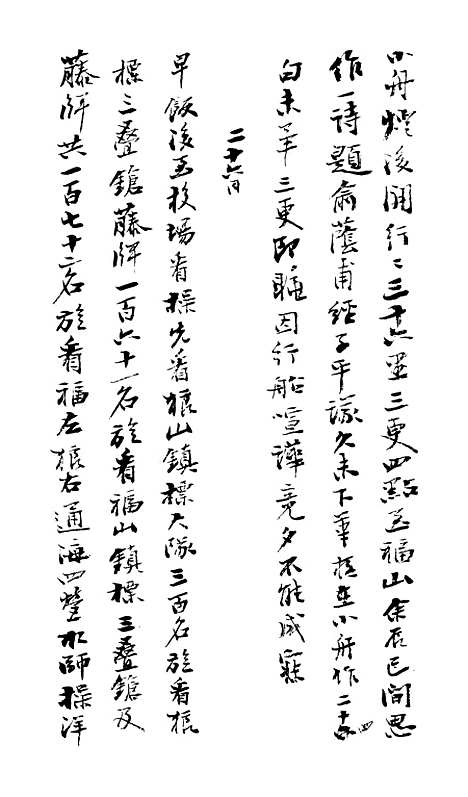 小舟燈後開行行三十六里三更四點至福山余辰巳間思
作一詩題俞蔭甫經子平議久未下筆極至小舟作二十四
句未畢三更即睡因行船喧譁竟夕不能成寐
二十六日
早飯後至校場看操先看狼山鎮標大隊三百名旋看狼
標三疊鎗藤牌一百六十一名旋看福山鎮標三疊鎗及
藤牌共一百七十名旋看福左狼右通海四營水師操洋